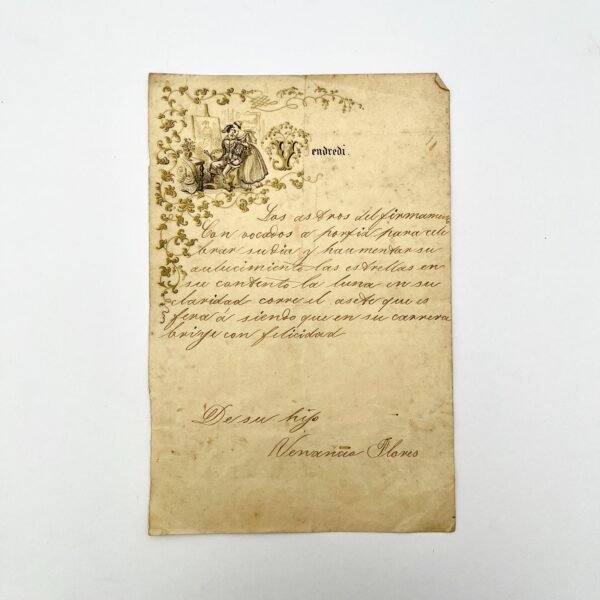 Vendredi.
Los astros del firmamento
Con vocados a porfil para cele
brar su dia y haumentar su
aulucimiento las estrellas en
su contento la luna en su
claridad corre el asete que es
fera á siendo que en su carrera
brize con felicidad
De su hijo
Venancio Flores